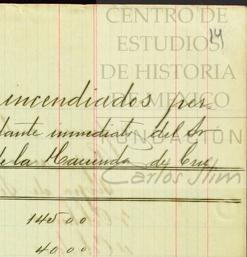 CENTRO DE
ESTUDIOS
DE HISTORIA
DE MÉXICO
14
incendiados per-
tante inmediato del Sr
FUNDACIÓN
de la Hacienda de Cru
Carlos Slim
145 00
40 00